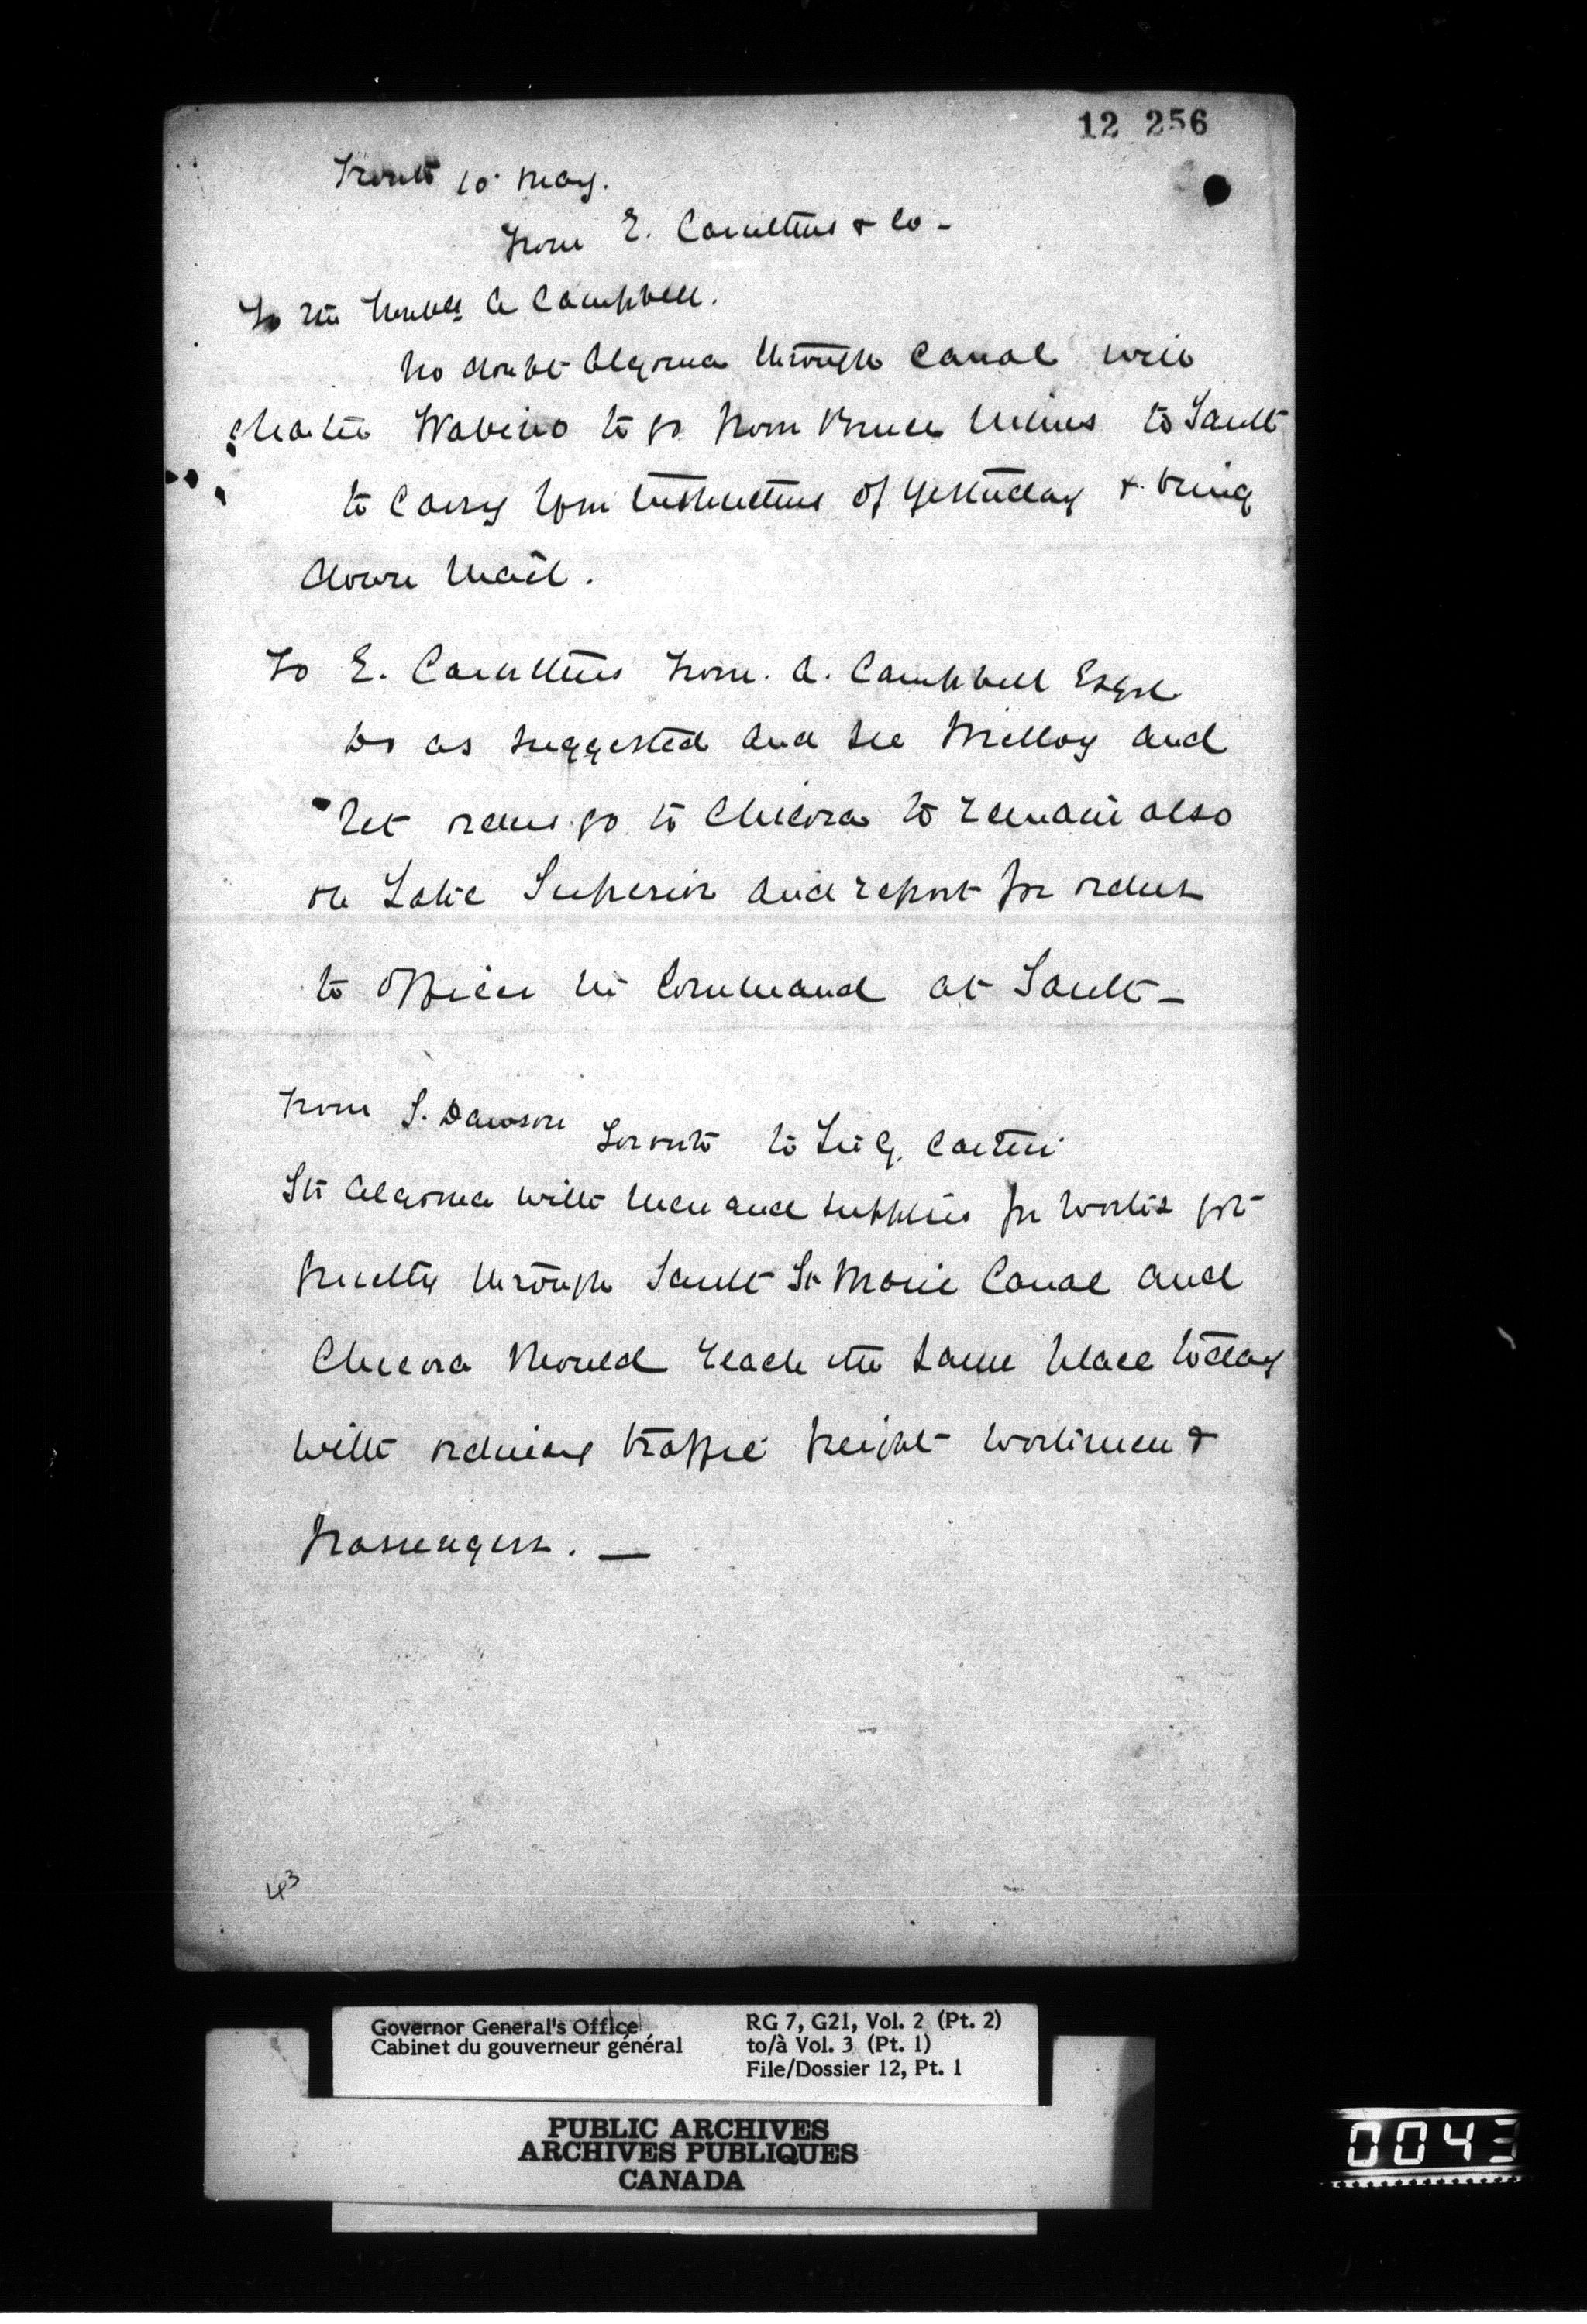 12 256
10 May.
From E. Carruthers & Co -
To The Honble. A Campbell.
No doubt Algoma through Canal will
charter Wabuno to go from Bruce Mines to Sault
to carry your instructions of yesterday & bring
down Mail.
To E. Carruthers from. A. Campbell Esqre
Do as suggested and see Milloy and
let orders go to Chicora to remain also
on Lake Superior and report for orders
to Officer in Command at Sault -
From S. Dawson Toronto to Sir G. Cartier
Str Algoma with men and supplies for works got
safely through Sault St Marie Canal and
Chicora should reach the same place today
with ordinary traffic freight workmen &
Passengers. —
43
Governor General's Office
Cabinet du gouverneur général
RG 7, G21, Vol. 2 (Pt. 2)
to/à Vol. 3 (Pt. 1)
File/Dossier 12, Pt. 1
PUBLIC ARCHIVES
ARCHIVES PUBLIQUES
CANADA
0043